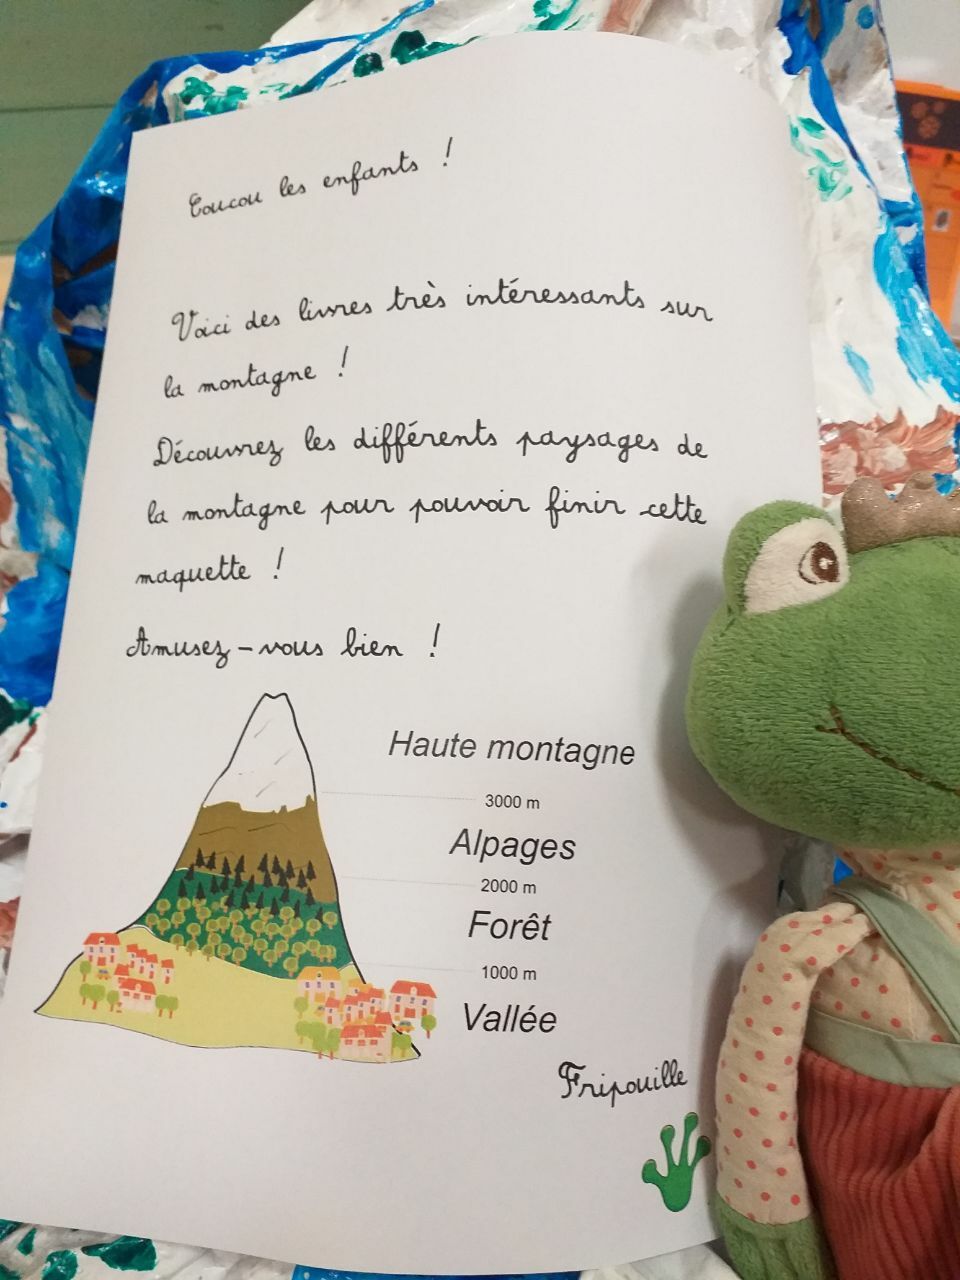 Coucou les enfants !
Voici des livres très intéressants sur
la montagne !
Découvrez les différents paysages de
la montagne pour pouvoir finir cette
maquette !
Amusez-vous bien !
Haute montagne
3000 m
Alpages
2000 m
Forêt
1000 m
Vallée
Fripouille